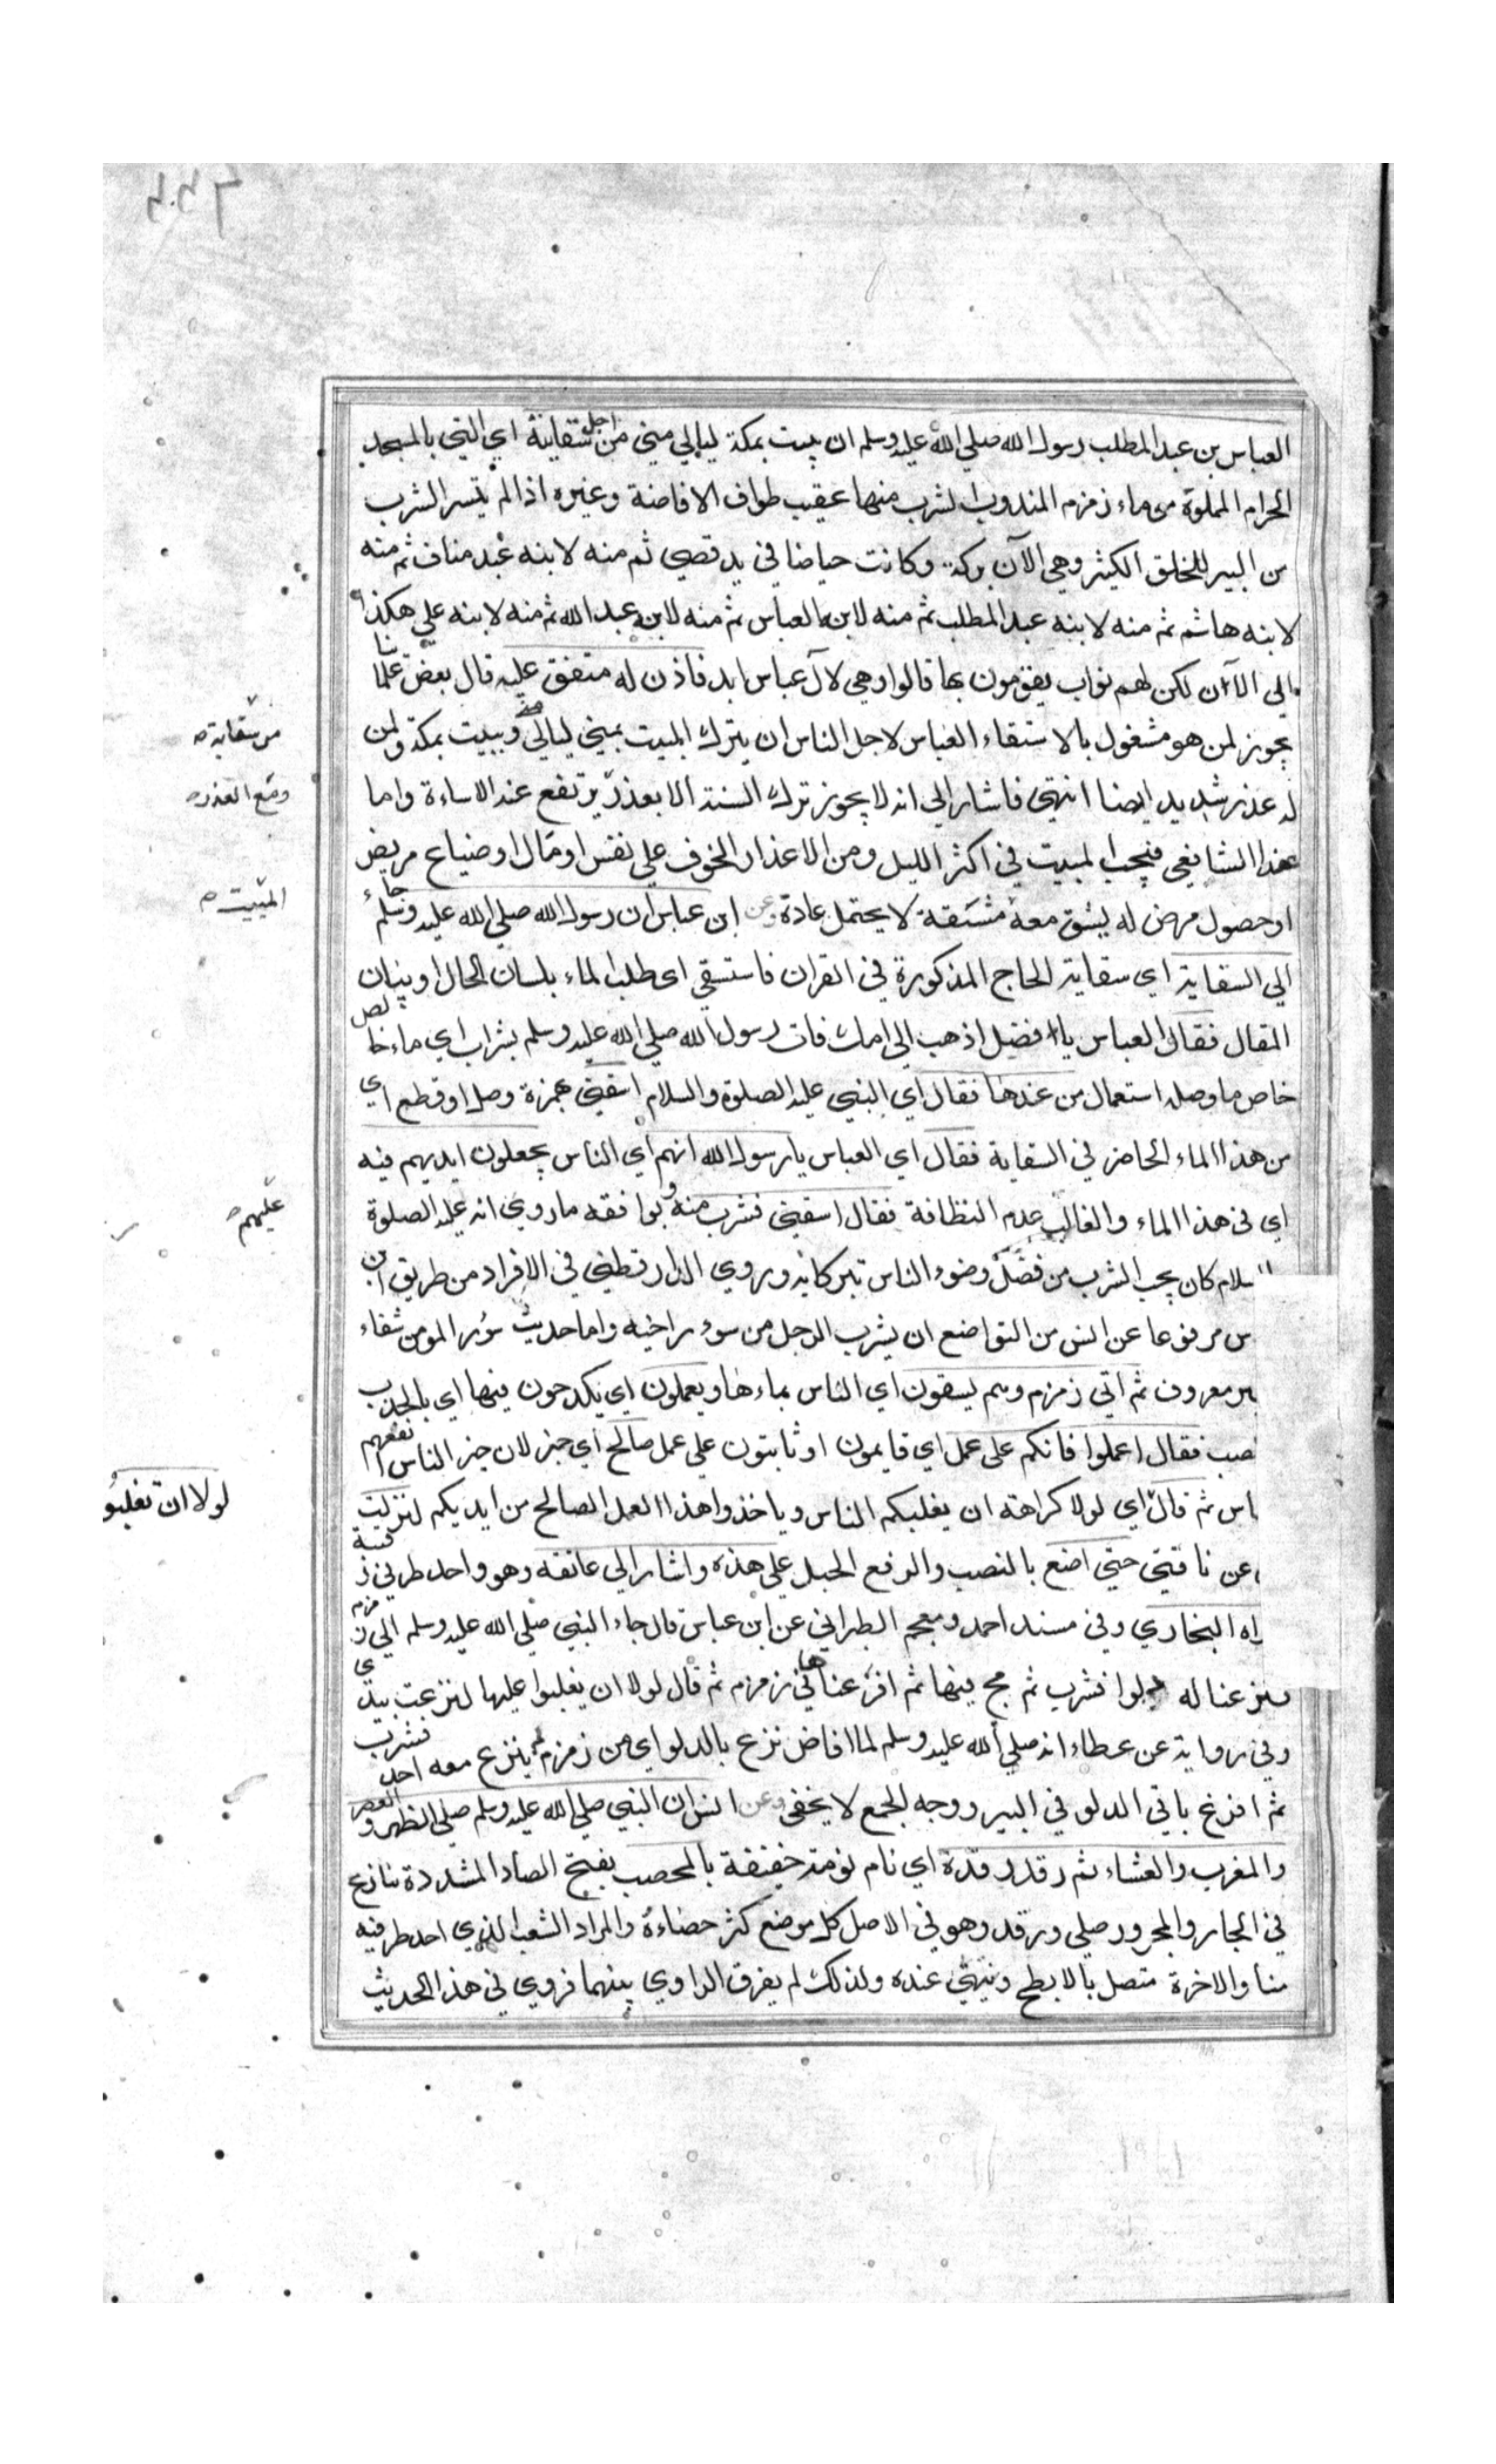 العباس بن عبد المطلب رسول الله صلي الله عليه وسلم ان يبيت بمكة ليالي مني من اجل سقايته اي التي بالمسجد
الحرام المملوة من ماء زمزم المندوب الشرب منها عقيب طواف الافاضة وغيره اذا لم يتيسر الشرب
من البير للخلق الكثير وهي الآن بركة وكانت حياضا في يد قصي ثم منه لابنه عبد مناف ثم منه
لابنه هاشم ثم منه لابنه عبد المطلب ثم منه لابنه العباس ثم منه لابنه عبد الله ثم منه لابنه علي هكذا
الي الآن لكن لهم نواب يقومون بها قالوا وهي لآل عباس ابد فاذن له متفق عليه قال بعض علمائنا
يجوز لمن هو مشغول بالاستقاء العباس لاجل الناس ان يترك المبيت بمني ليالي ويبيت بمكة ولمن
له عذر شديد ايضا انتهي فاشار الي انه لا يجوز ترك السنة الا بعذر يرتفع عند الاساءة واما
عند الشافعي فيجب المبيت في اكثر الليل ومن الاعذار الخوف علي نفس او مال او ضياع مريض
او حصول مرض له يشق معه مشقة لا يحتمل عادة وعن ابن عباس ان رسول الله صلي الله عليه وسلم جاء
الي السقاية اي سقاية الحاج المذكورة في القران فاستسقي اي طلب الماء بلسان الحال او ببيان
المقال فقال العباس يا فضل اذهب الي امك فات رسول الله صلي الله عليه وسلم بشراب اي ماء خالص
خاص ما وصله استعمال من عندها فقال اي النبي عليه الصلوة والسلام اسقني بهمزة وصل او قطع اي
من هذا الماء الحاضر في السقاية فقال اي العباس يا رسول الله انهم اي الناس يجعلون ايديهم فيه
اي في هذا الماء والغالب عدم النظافة فقال اسقني فشرب منه ويوافقه ما روي انه عليه الصلوة
السلام كان يحب الشرب من فضل وضوء الناس تبركا به وروي الدارقطني في الافراد من طريق ابن
س مرفوعا عن انس من التواضع ان يشرب الرجل من سور اخيه واما حديث سور المومن شفاء
ير معروف ثم اتي زمزم وهم يسقون اي الناس بماءها ويعملون اي يكدحون فيها اي بالجذب
صب فقال اعملوا فانكم علي عمل اي قايمون او ثابتون علي عمل صالح اي خير لان خير الناس انفعهم
اس ثم قال اي لولا كراهة ان يغلبكم الناس وياخذوا هذا العمل الصالح من ايديكم لنزلت
عن ناقتي حتي اضع بالنصب والرفع الحبل علي هذه واشار الي عاتقه وهو واحد طرفي رقبته
راه البخاري وفي مسند احمد ومعجم الطبراني عن ابن عباس قال جاء النبي صلي الله عليه وسلم الي زمزم
فنزعنا له دلوا فشرب ثم مج فيها ثم افرغناها في زمزم ثم قال لولا ان يغلبوا عليها لنزعت بيدي
وفي رواية عن عطاء انه صلي الله عليه وسلم لما افاض نزع بالدلو اي من زمزم لم ينزع معه احد فشرب
ثم افرغ باقي الدلو في البير ووجه الجمع لا يخفي وعن انس ان النبي صلي الله عليه وسلم صلي الظهر والعصر
والمغرب والعشاء ثم رقد رقدة اي نام نومة خفيفة بالمحصب بفتح الصاد المشددة تنازع
في الجار والمجرور صلي ورقد وهو في الاصل كل موضع كثر حصاءه والمراد الشعب الذي احد طرفيه
منا والاخرة متصل بالابطح وينتهي عنده ولذلك لم يفرق الراوي بينهما فروي في هذا الحديث
من سقايته
وقع العذر
المبيت
عليهم
لولا ان تغلبوا